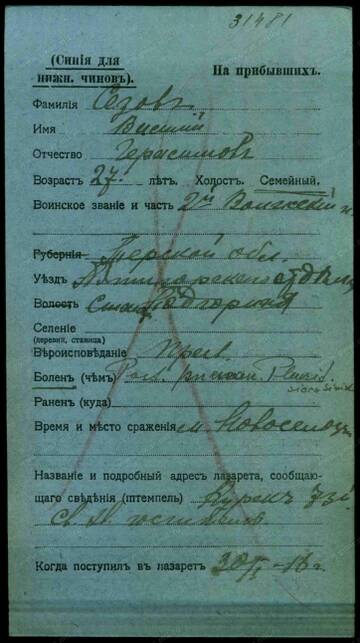 31481
(Синія для
нижн. чиновъ).
На прибывшихъ.
Фамилія Сезовъ
Имя Василій
Отчество Герасимовъ
Возрастъ 27. лѣтъ. Холост. Семейный.
Воинское званіе и часть 2й Волжскій
Губернія Терской обл.
Уѣздъ Пятигорскаго отдѣла
Волость Стан. Подгорная
Селеніе
(деревня, станица)
Вѣроисповѣданіе Прав.
Боленъ (чѣмъ) Post.
Раненъ (куда)
Время и мѣсто сраженія м. Новоселицы
Названіе и подробный адресъ лазарета, сообщаю-
щаго свѣдѣнія (штемпель) Курскъ
Св.
Когда поступилъ въ лазаретъ 30/I-16 г.